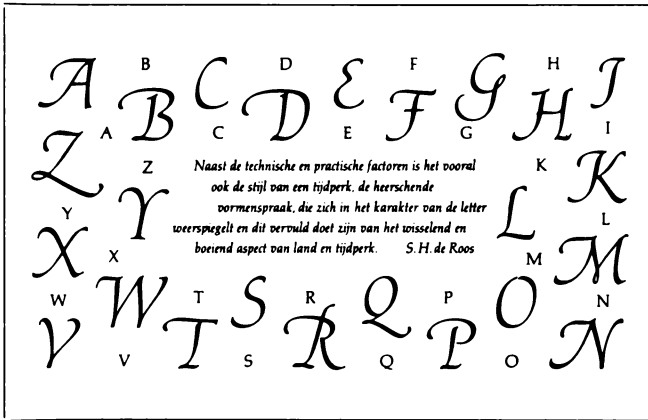 A B C D E F G H I
A B C D E F G H I
Z Z K K
Naast de technische en practische factoren is het vooral
ook de stijl van een tijdperk, de heerschende
vormenspraak, die zich in het karakter van de letter
weerspiegelt en dit vervuld doet zijn van het wisselend en
boeiend aspect van land en tijdperk. S. H. de Roos
Y Y L L
X X M M
W W T S R Q P O N
V V T S R Q P O N